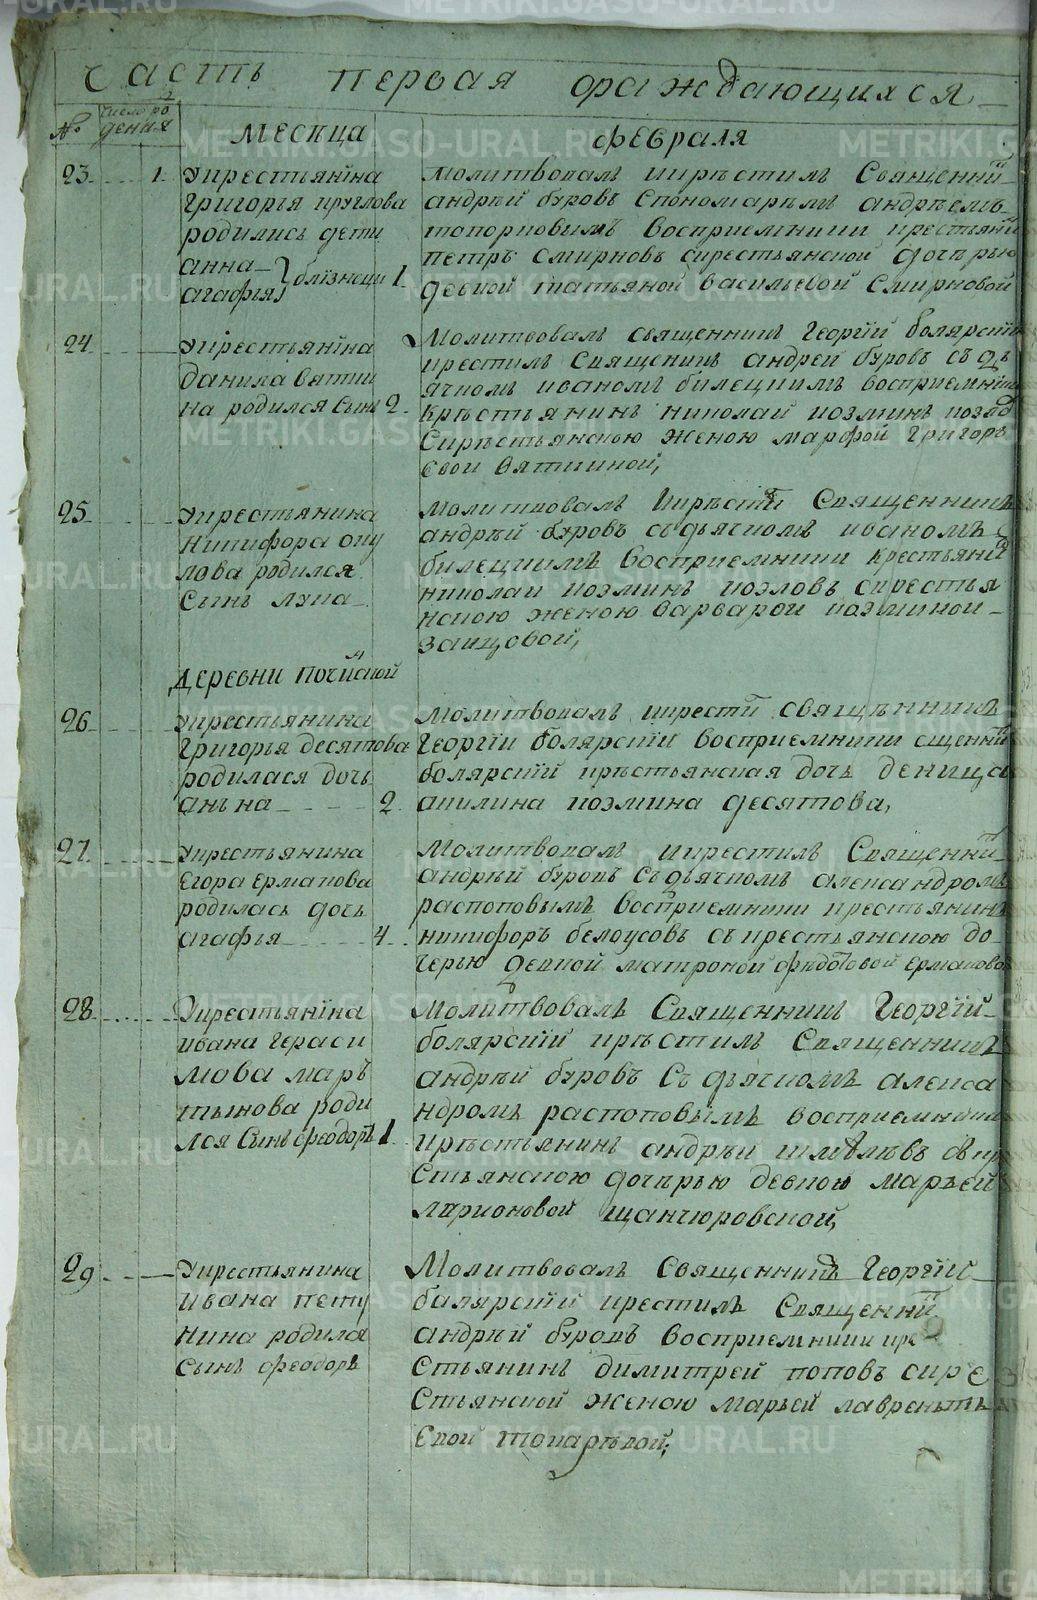 часть первая ораждающихся
№ число рождения
месяца февраля
23 1 укрестьянина
григорья круглова
родились дети
анна
агафия } близнеци 1
молитвовалъ икрѣстилъ Священни
андрѣй буровъ Спономарѣмъ андрѣемъ
топорковымъ восприемники крестьяни
петръ смирновъ скрестьянской дочѣрью
девкой татьяной васильевой Смирновой
24 укрестьянина
данила вятки
на родился сынъ 2
Молитвовалъ священникъ Георгiй болярскiй
крестилъ Священикъ андрей буровъ съ дь
ячкомъ иваномъ билецкимъ восприемники
крѣстьянинъ николай козминъ козло
Скрѣстьянскою женою марфой григорь
евой вяткиной,
25 укрестьянина
Никифора оку
лова родился
Сынъ лука
молитвовалъ Икрѣсти Священникъ
андрѣй буровъ съ дьячкомъ иваномъ
билецкимъ восприемники крестьяни
николаи козминъ козловъ скрестья
нскою женою варварой козминой
заицовой,
деревни почи ской
26 укрестьянина
григорья десятова
родилася дочь
анъна 2
молитвовалъ икрести священникъ
георгiи болярскiи восприемники сщенни
болярскiй крѣстьянская дочь девица
акилина козмина десятова,
27 укрестьянина
Егора ермакова
родилась дочь
агафья 4
Молитвовалъ икрестилъ Священни
андрѣй буровъ съ дьячкомъ александромъ
распоповымъ восприемники крестьянинъ
никифоръ белоусовъ съ крестьянскою до
черью девкой матроной федотовой ермаково
28 укрестьянина
ивана гераси
мова мар
тынова роди
лся Сынъ феодоръ 1
молитвовалъ Священникъ Георгiй
болярскiй крѣстилъ Священникъ
андрѣй буровъ Съ дьячкомъ алекса
ндромъ распоповымъ восприемники
крѣстьянинъ андрѣи
стьянскою дочѣрью девкою марьей
ларионовой щанчюровской,
29 укрестьянина
ивана пету
нина родился
сынъ феодоръ
Молитвовалъ Священникъ Георгiй
балярскiй крестилъ Священни
андрѣй буровъ восприемники кре
стьянинъ димитрей поповъ скре
стьянской женою марьей лавренть
евой токаревой,
METRIKI.GASO-URAL.RU